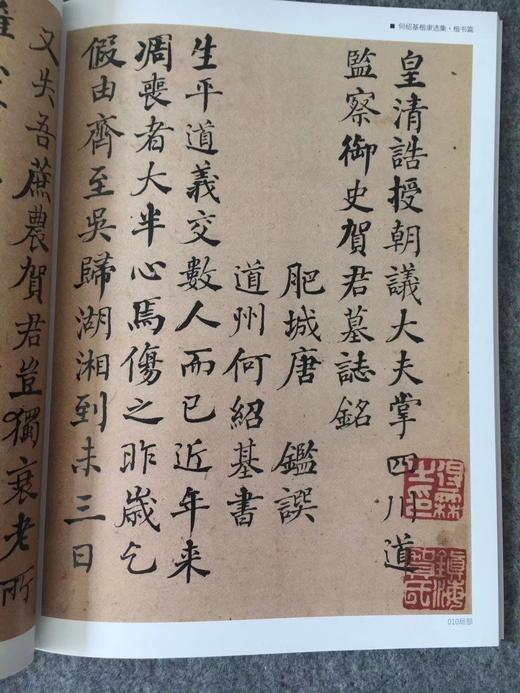 ■ 何绍基楷隶选集·楷书篇
皇清誥授朝議大夫掌四川道
監察御史賀君墓誌銘
肥城唐 鑑譔
道州何紹基書
生平道義交數人而已近年来
凋喪者大半心焉傷之昨歲乞
假由齊至吳歸湖湘到未三日
又失吾蔗農賀君豈獨衰老所
得霖
士印
鎮海
賀氏
010局部